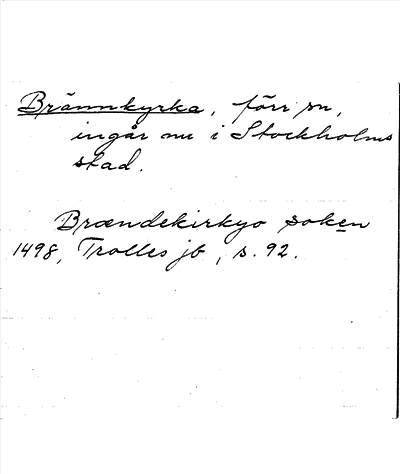 Brännkyrka, förr sn,
ingår nu i Stockholms
stad.
Brændekirkyo soken
1498, Trolles jb, s. 92.